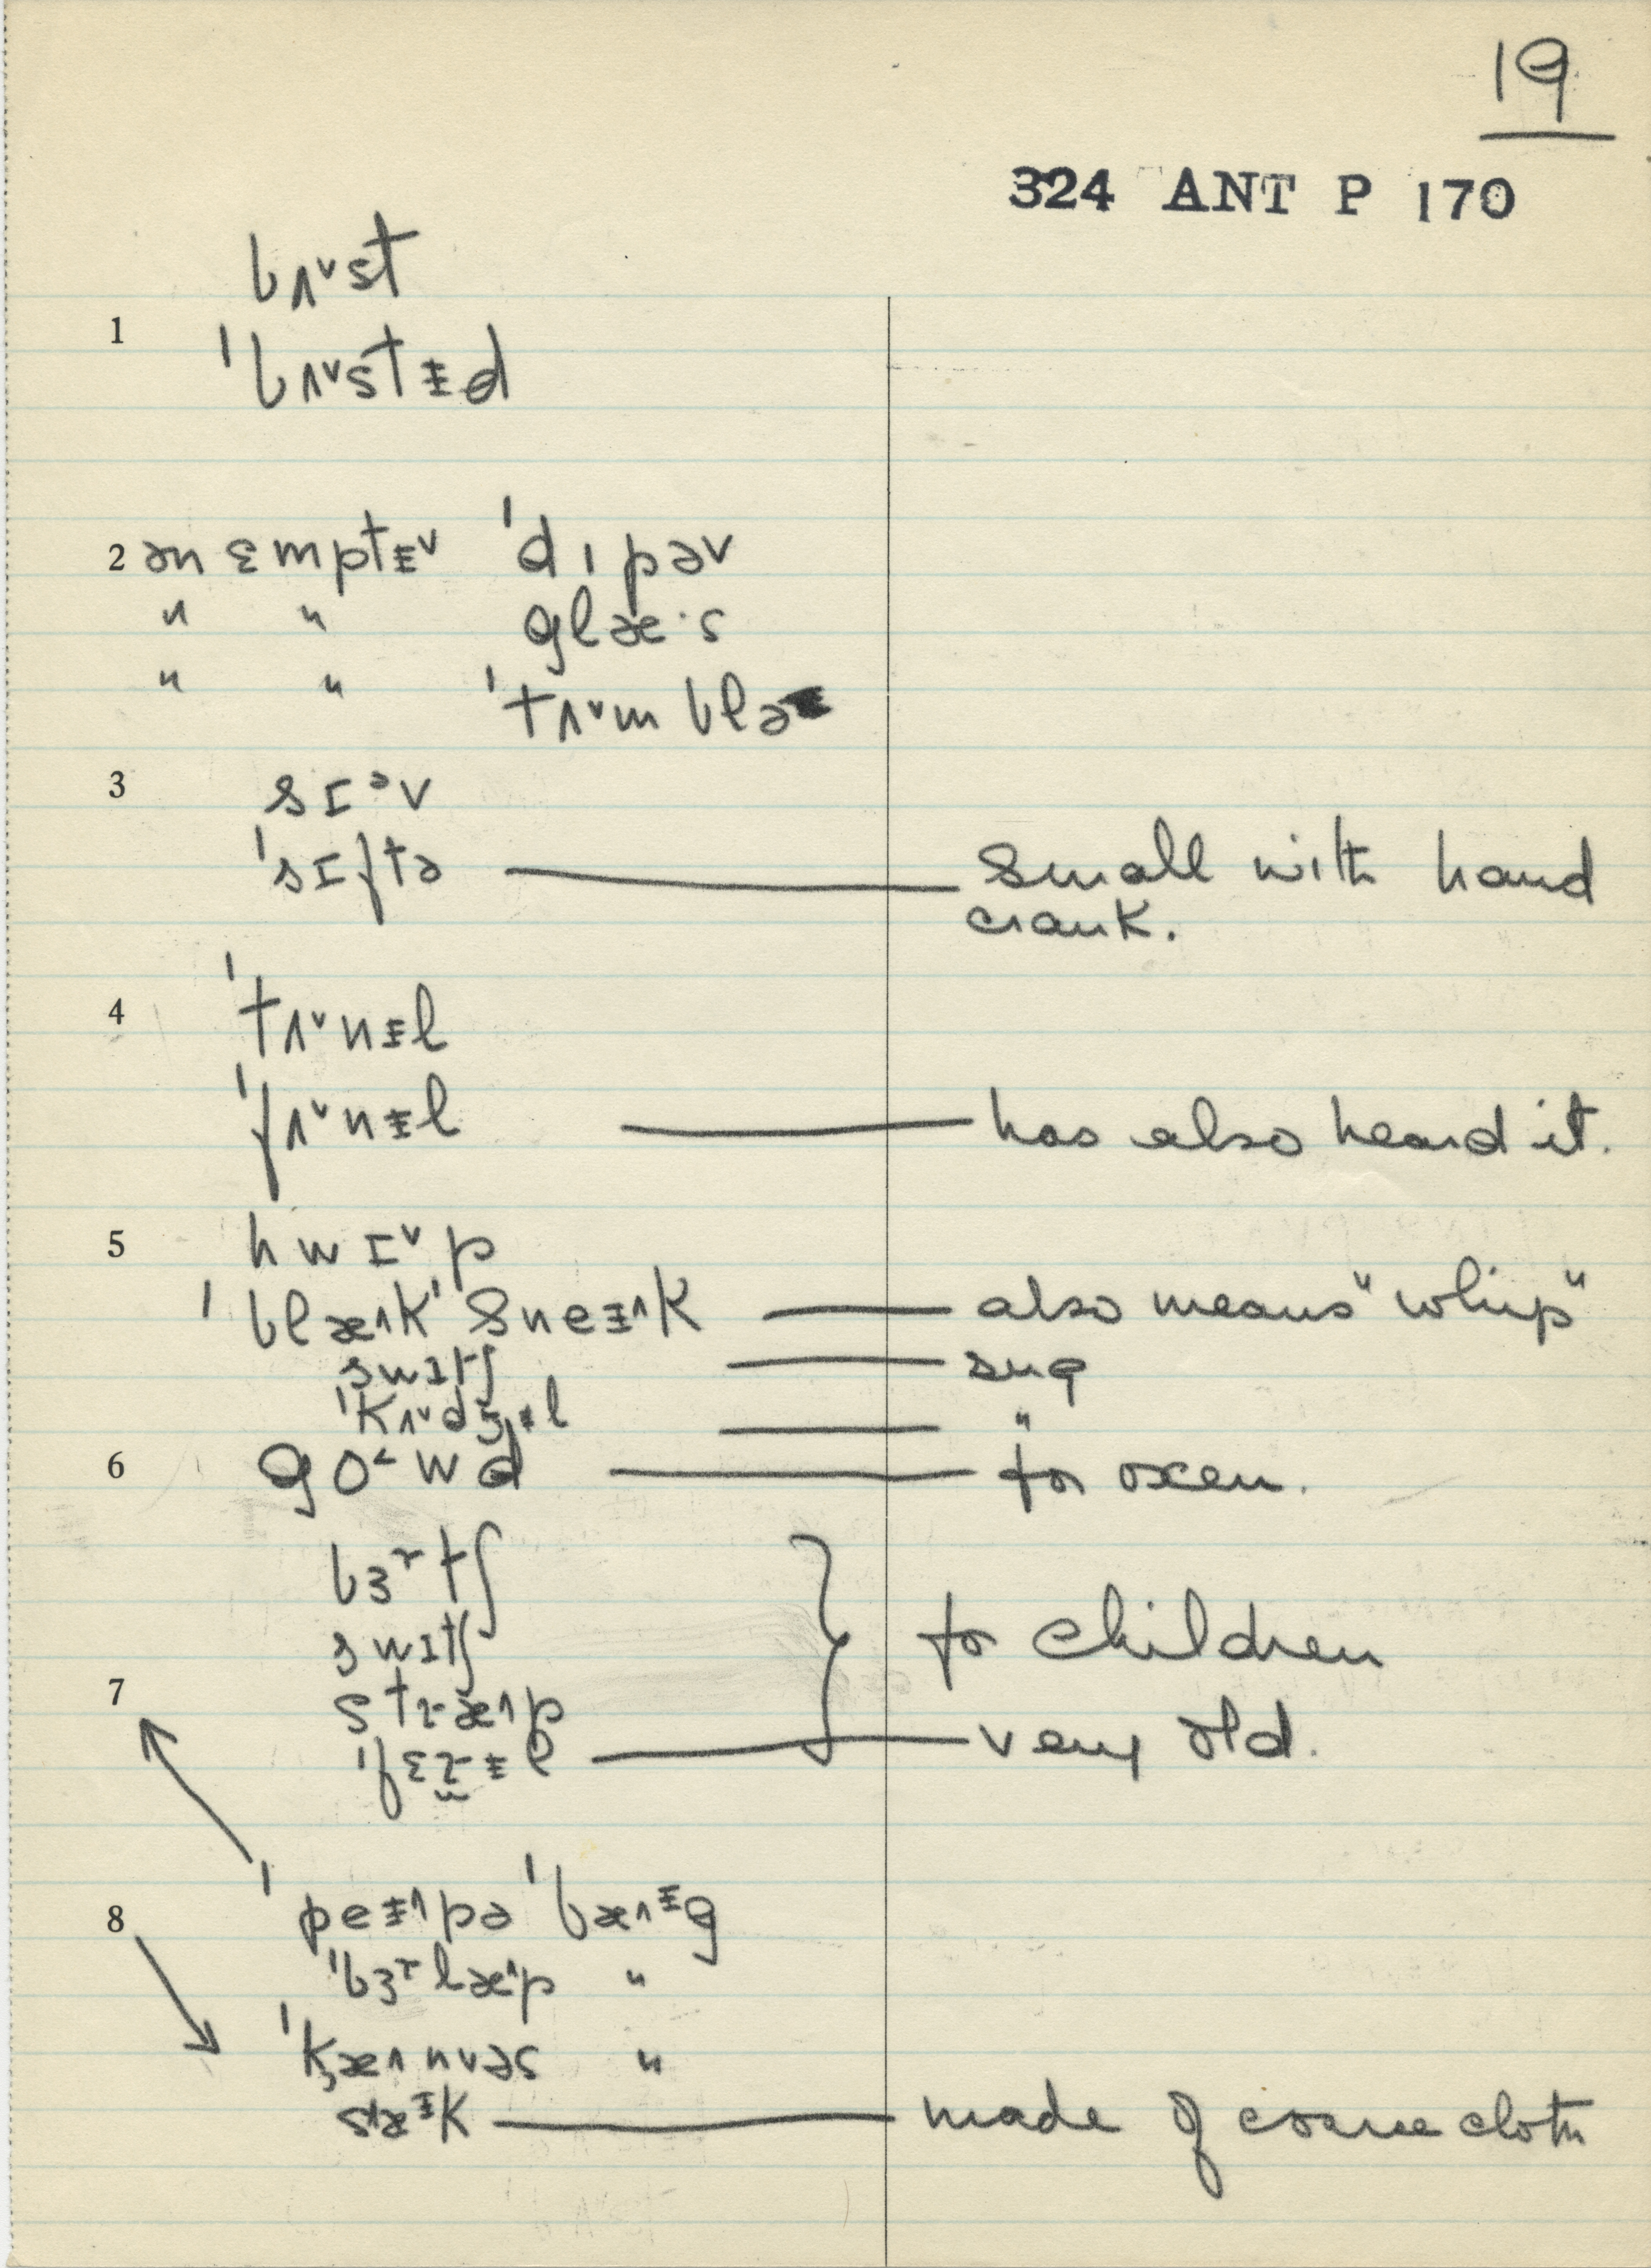 19
324 ANT P 170
bʌ˅st
1 ˈbʌ˅stᵻd
2 ən ɛmptᵻ˅ ˈdɪpəv
" " glæ·s
" " ˈtʌ˅mblə
3 sɪᵊv
ˈsɪftə — Small with hand
crank.
4 ˈtʌ˅nᵻl
ˈfʌ˅nᵻl — has also heard it.
5 hwɪ˅p
ˈblæ˄kˈsneᵻ˄k — also means "whip"
swɪtʃ — sug
ˈkʌ˅dʒᵻl — "
6 go˂wd — for oxen.
bɜʳtʃ
swɪtʃ } for children
7 stɽæ˄p
ˈfɛɽᵻl — very old.
ˈpeᵻ˄pəˈbæ˄ᵻg
8 ˈbɜʳlæ˄p "
ˈkæ˄nvəs "
sæᵻk — made of coarse cloth